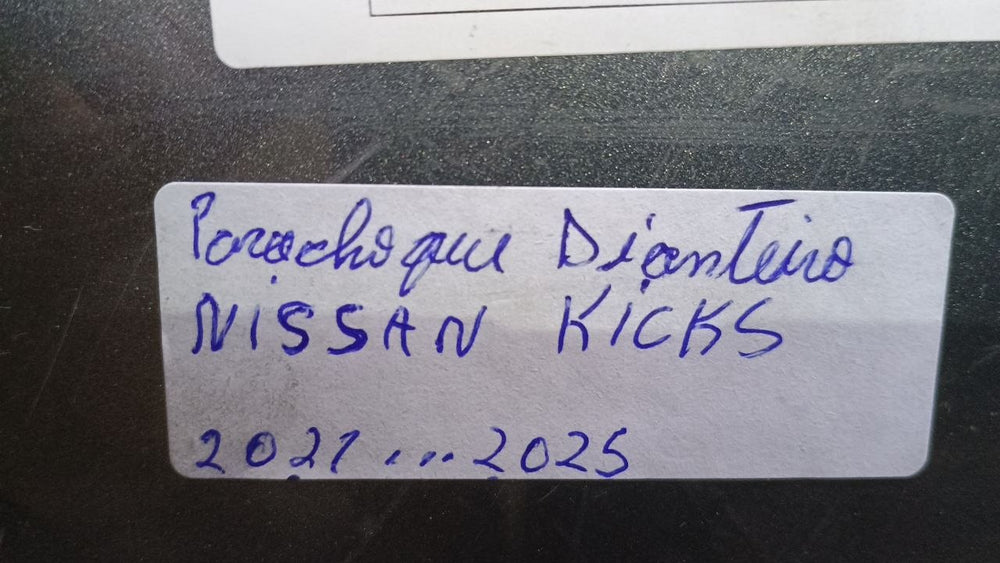 Parachoque Dianteiro
NISSAN KICKS
2021...2025